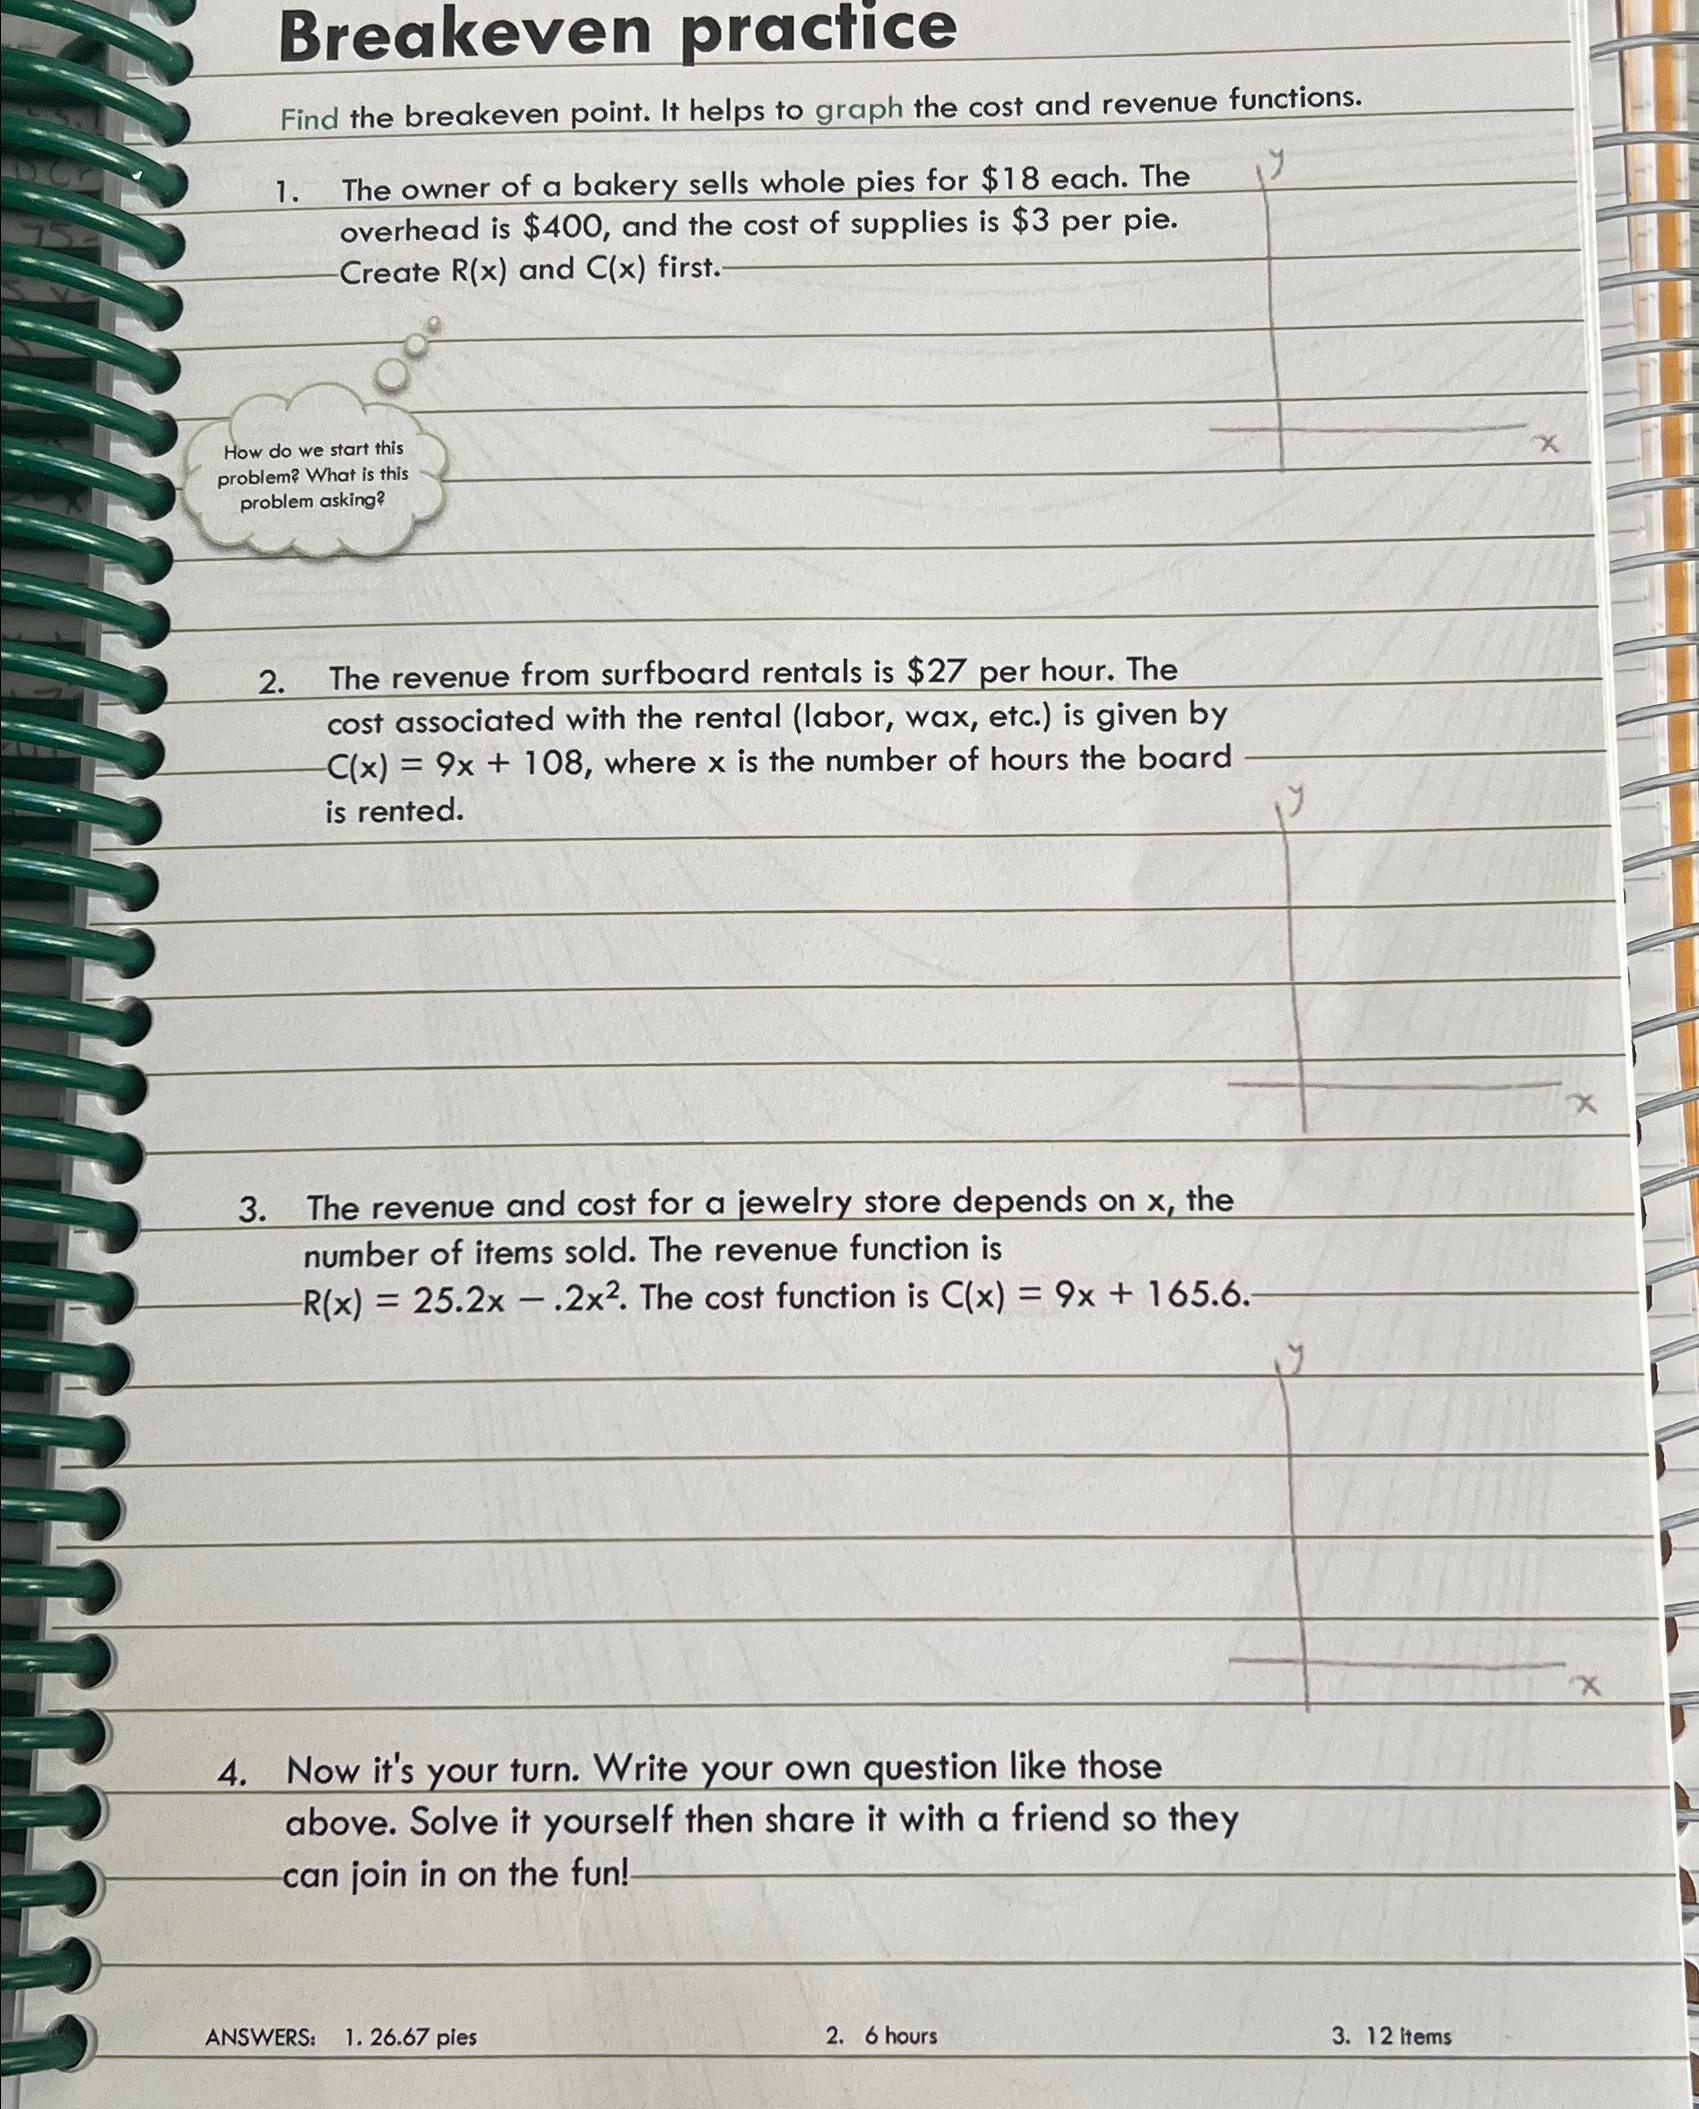 Breakeven practice
Find the breakeven point. It helps to graph the cost and revenue functions.
1. The owner of a bakery sells whole pies for $18 each. The
overhead is $400, and the cost of supplies is $3 per pie.
Create R(x) and C(x) first.
y
x
How do we start this
problem? What is this
problem asking?
2. The revenue from surfboard rentals is $27 per hour. The
cost associated with the rental (labor, wax, etc.) is given by
C(x) = 9x + 108, where x is the number of hours the board
is rented.
y
x
3. The revenue and cost for a jewelry store depends on x, the
number of items sold. The revenue function is
R(x) = 25.2x – .2x². The cost function is C(x) = 9x + 165.6.
y
x
4. Now it's your turn. Write your own question like those
above. Solve it yourself then share it with a friend so they
can join in on the fun!
ANSWERS: 1. 26.67 pies 2. 6 hours 3. 12 items